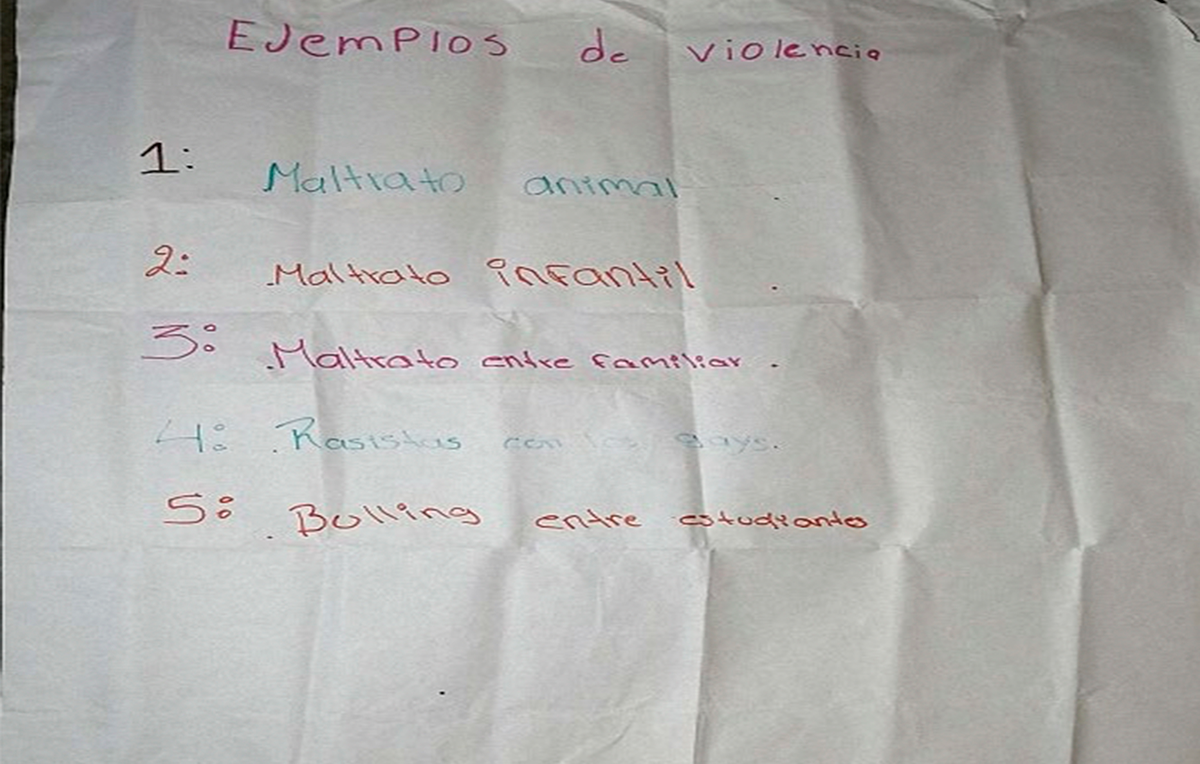 Ejemplos de violencia
1: Maltrato animal .
2: .Maltrato infantil .
3: .Maltrato entre familiar .
4: .Rasistas con los gays.
5: .Bulling entre estudiante